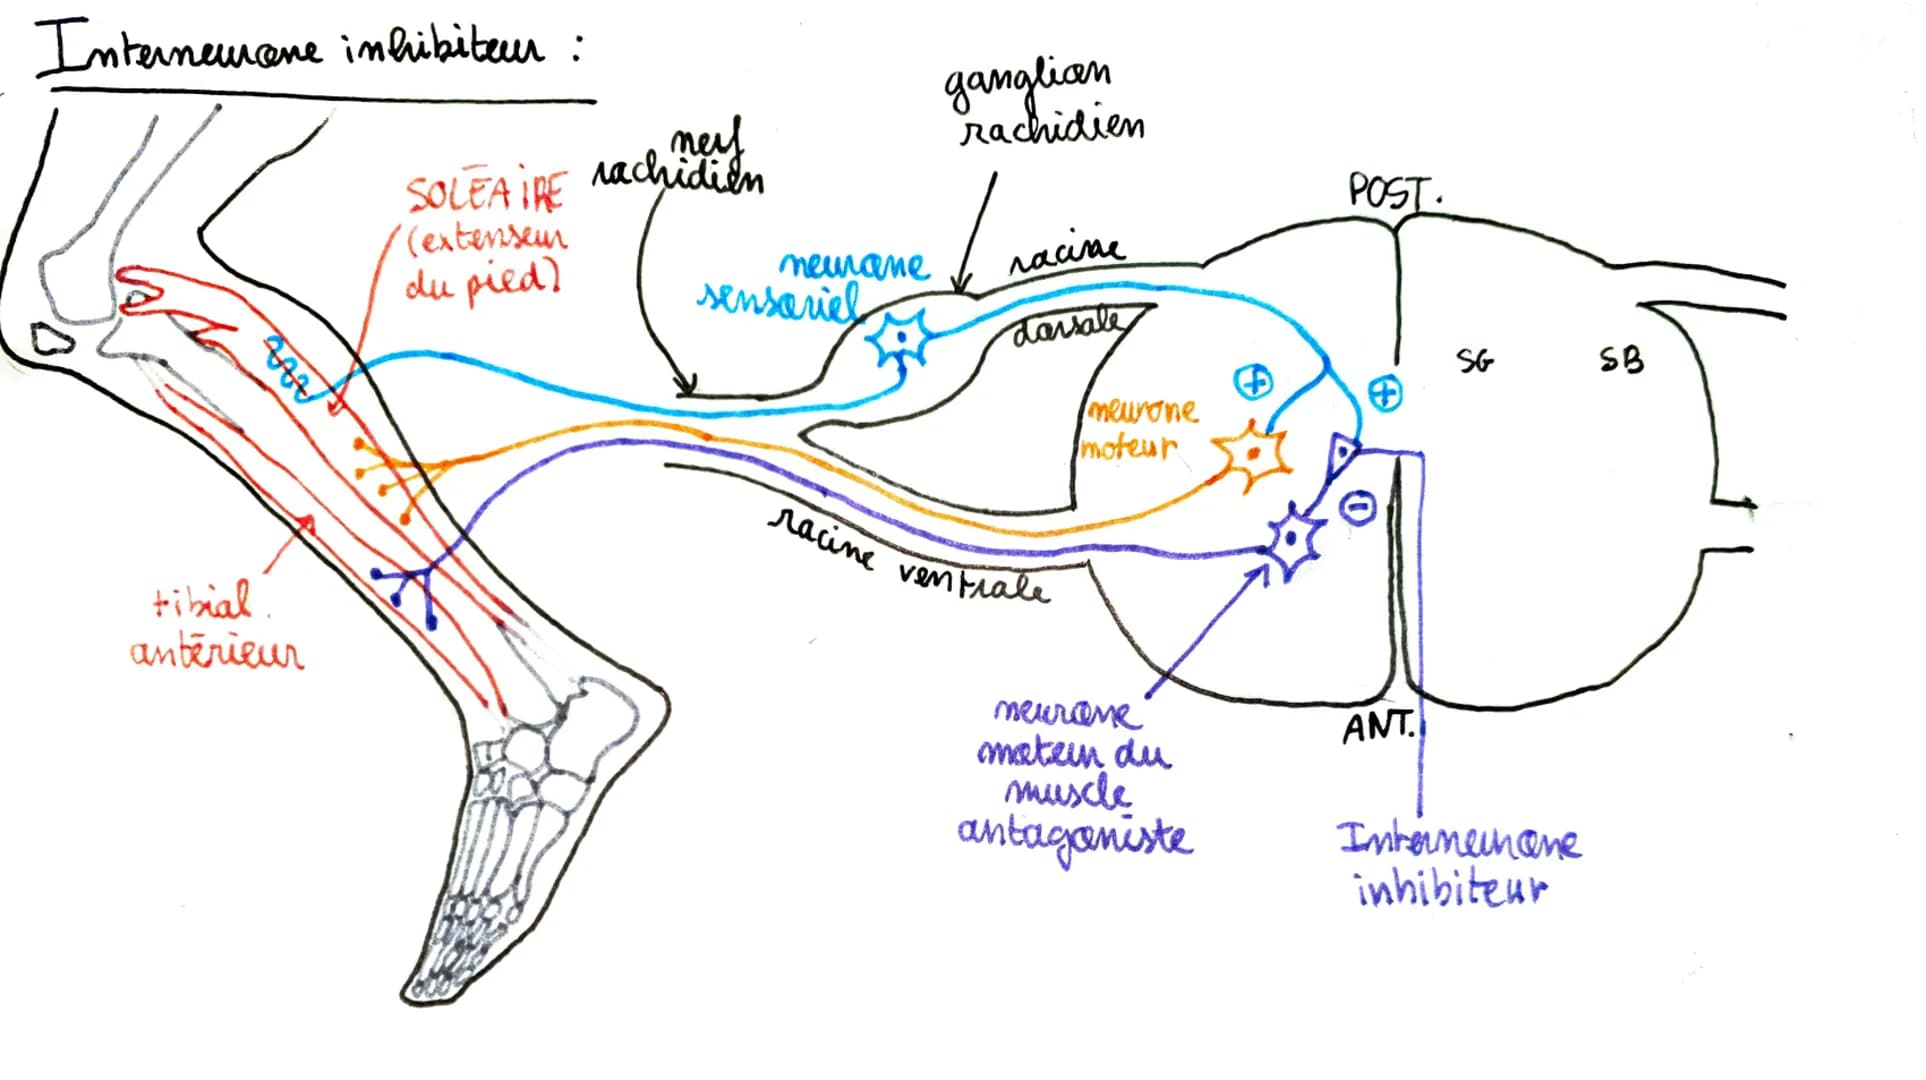 Interneurone inhibiteur :
ganglion
rachidien
nerf
rachidien
SOLÉAIRE
(extenseur
du pied)
POST.
neurone
sensoriel
racine
dorsale
SG
SB
+
+
neurone
moteur
-
racine ventrale
tibial
antérieur
neurone
moteur du
muscle
antagoniste
ANT.
Interneurone
inhibiteur